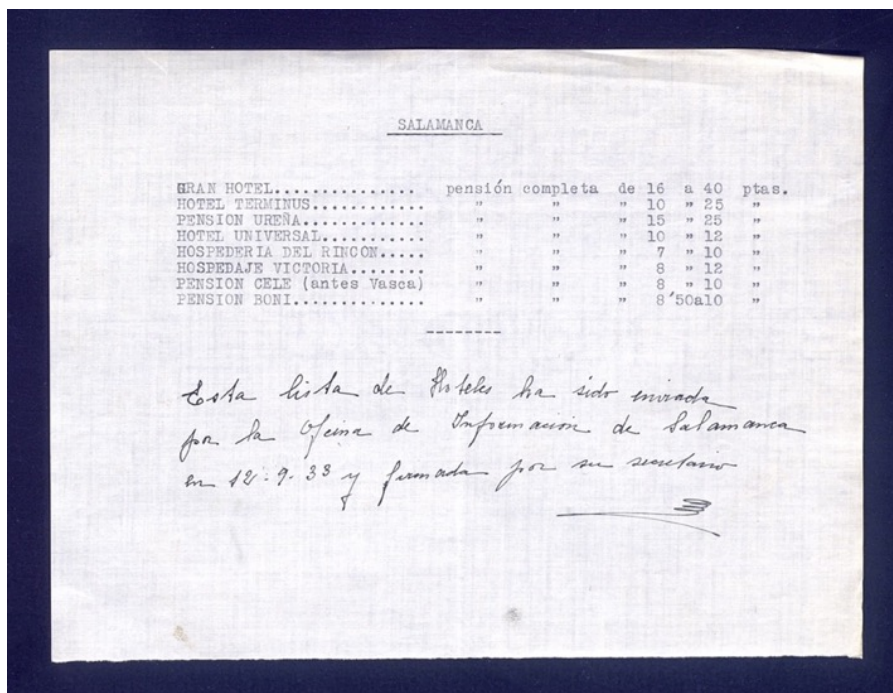 SALAMANCA
GRAN HOTEL............... pensión completa de 16 a 40 ptas.
HOTEL TERMINUS............ " " " 10 " 25 "
PENSION UREÑA............. " " " 15 " 25 "
HOTEL UNIVERSAL........... " " " 10 " 12 "
HOSPEDERIA DEL RINCON..... " " " 7 " 10 "
HOSPEDAJE VICTORIA........ " " " 8 " 12 "
PENSION CELE (antes Vasca) " " " 8 " 10 "
PENSION BONI.............. " " " 8'50a10 "
---------
Esta lista de Hoteles ha sido enviada
por la Oficina de Información de Salamanca
en 12-9-33 y firmada por su secretario